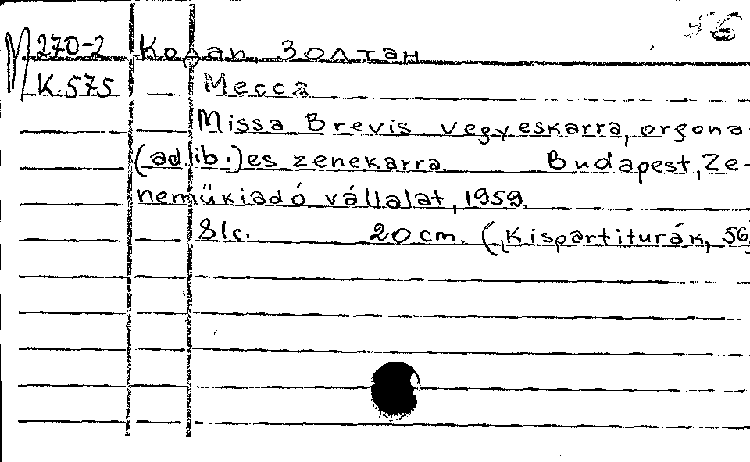 М 270-2 Кодаи, Золтан 56
К.575 Месса
Missa Brevis vegyeskarra, orgona
(ad lib.) es zenekarra Budapest, Ze-
neműkiadó vállalat, 1959.
81c. 20 cm. (Kispartiturák, 56)